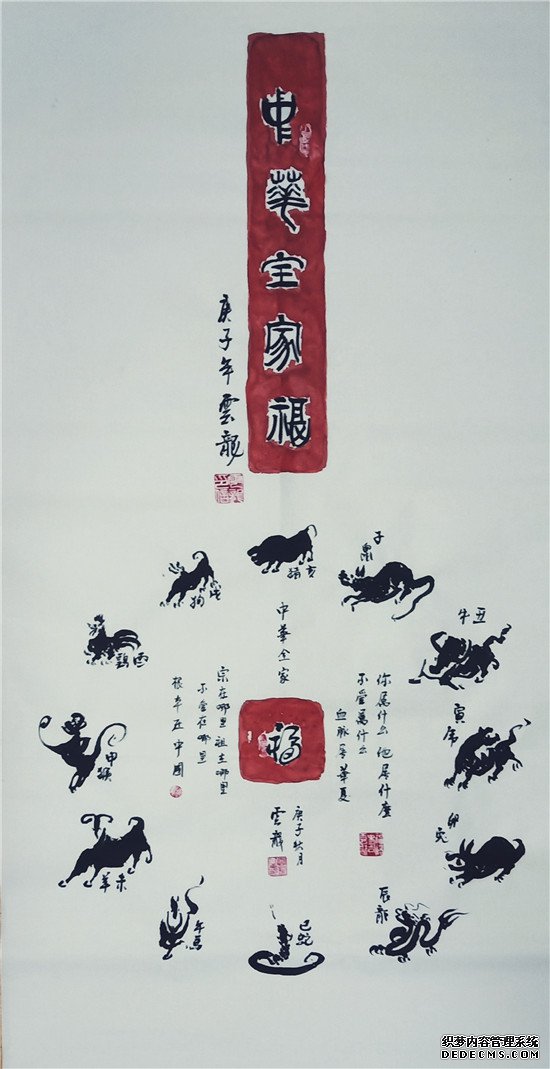 中華全家福
庚子年雲龍
亥猪
子鼠
丑牛
寅虎
卯兔
辰龍
巳蛇
午馬
未羊
申猴
酉鷄
戌狗
中華全家
福
你属什么他属什麼
不管属什么
血脉属華夏
宗在哪里祖在哪里
不管在哪里
根本在中國
庚子 月
雲龍
织梦内容管理系统
DEDECMS.COM